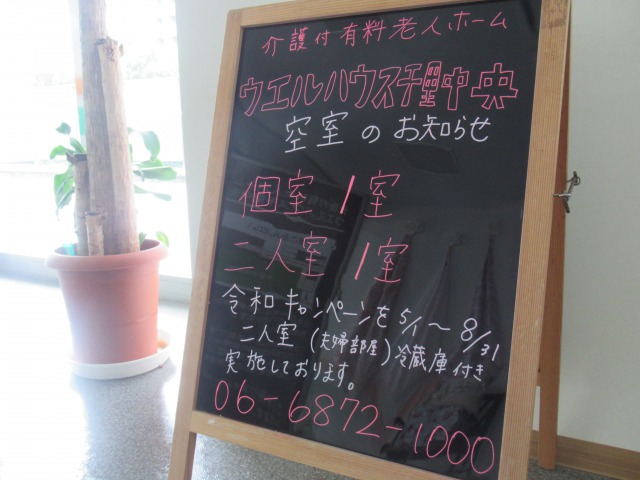 介護付有料老人ホーム
ウエルハウス千里中央
空室のお知らせ
個室 1室
二人室 1室
令和キャンペーンを5/1〜8/31
二人室(夫婦部屋)冷蔵庫付き
実施しております。
06-6872-1000